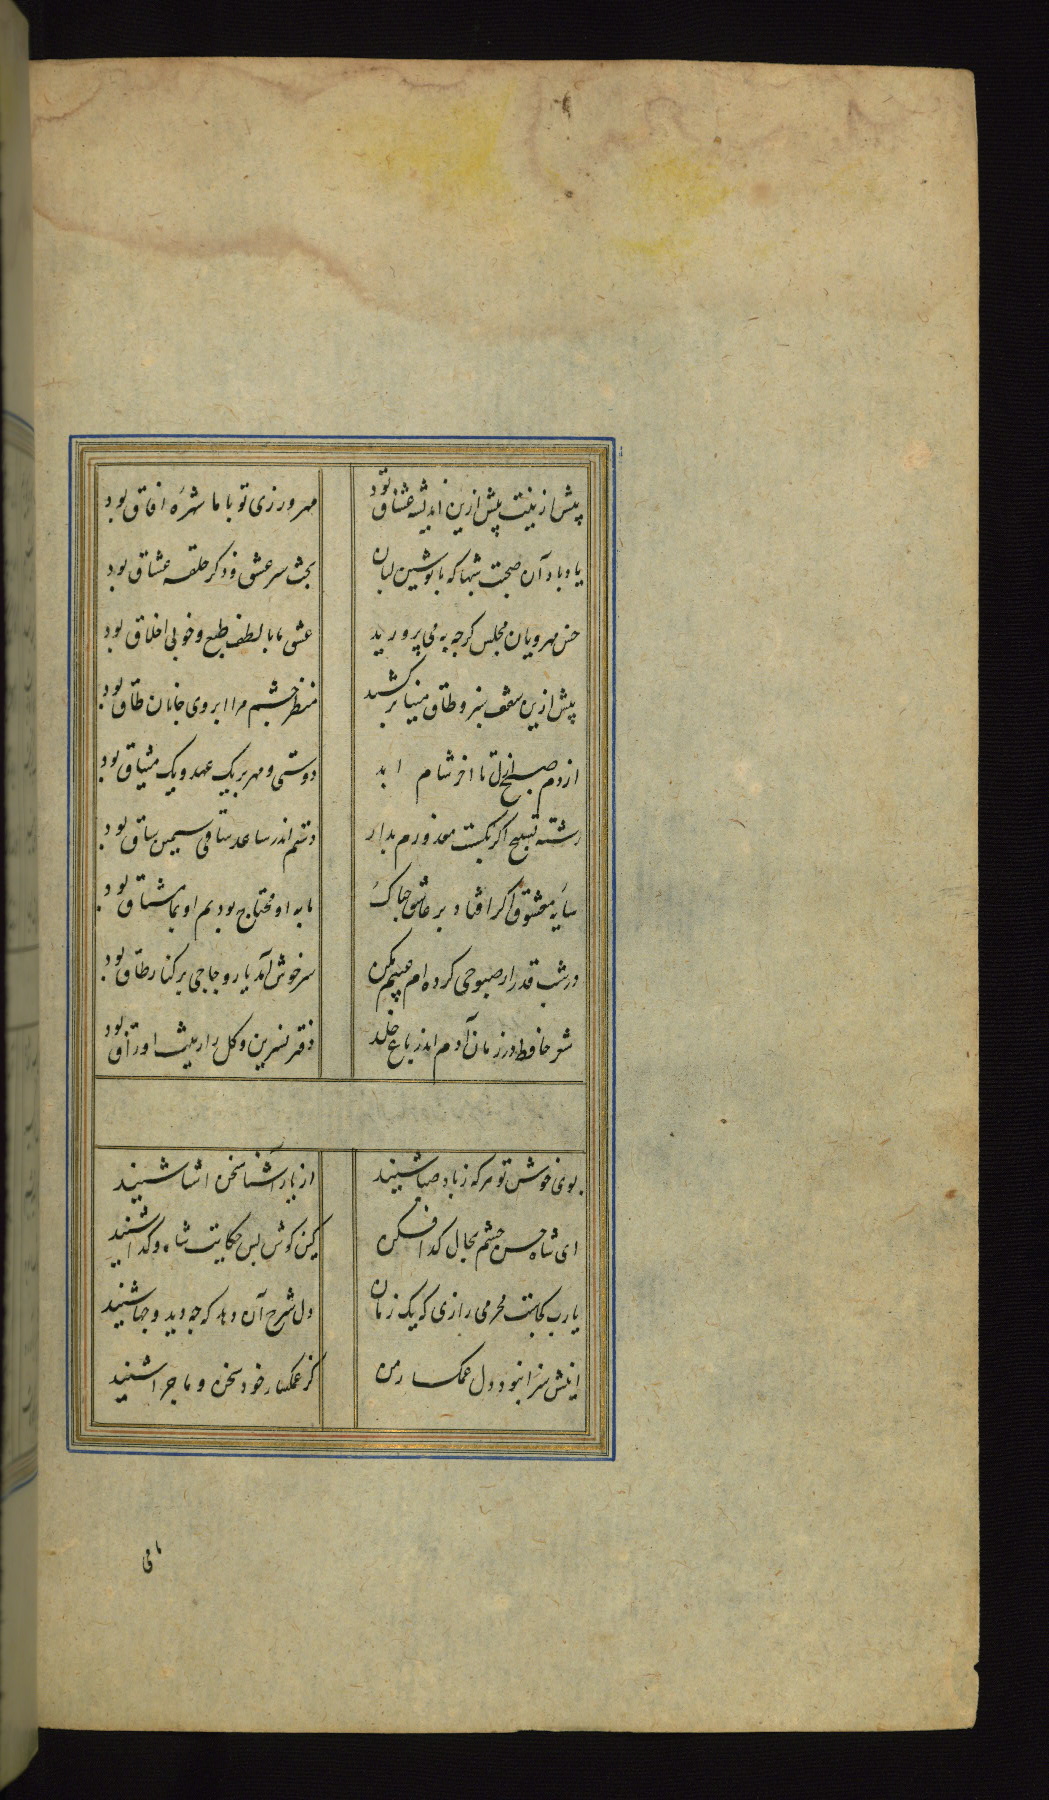 پیش ازینت پیش ازین اندیشه عشاق بود مهرورزی تو با ما شهرهٔ افاق بود
یاد باد آن صحبت شبها که با نوشین لبان بحث سر عشق و ذکر حلقه عشاق بود
حسن مهرویان مجلس کرچه می پرورید عشق ما با لطف طبع و خوبی اخلاق بود
پیش ازین سقف سبز و طاق مینا برکشند منظر چشم مرا ابروی جانان طاق بود
از دم صبح ازل تا اخر شام ابد دوستی و مهر بریک عهد و یک میثاق بود
رشته تسبیح اکر بکسست معذورم بدار دستم اندر ساعد ساقی سیمین ساق بود
سایهٔ معشوق اکر افتاد بر عاشق چه باک ما به او محتاج بودیم او بما مشتاق بود
در شب قدر ار صبوحی کرده ام عیبم مکن سرخوش آمد یار و جامی بر کنار طاق بود
شعر حافظ در زمان آدم اندر باغ خلد دفتر نسرین و کل را زینت اوراق بود
بوی خوش تو هرکه ز باد صبا شنید از یار آشنا سخن اشنا شنید
ای شاه حسن چشم بحال کدا فکن کین کوش بس حکایت شاه و کدا شنید
یارب کجاست محرم رازی که یک زمان دل شرح آن دهد که چه دید و چها شنید
اینش سزا نبود دل غمکسار من کز غمکسار خود سخن و ماجرا شنید